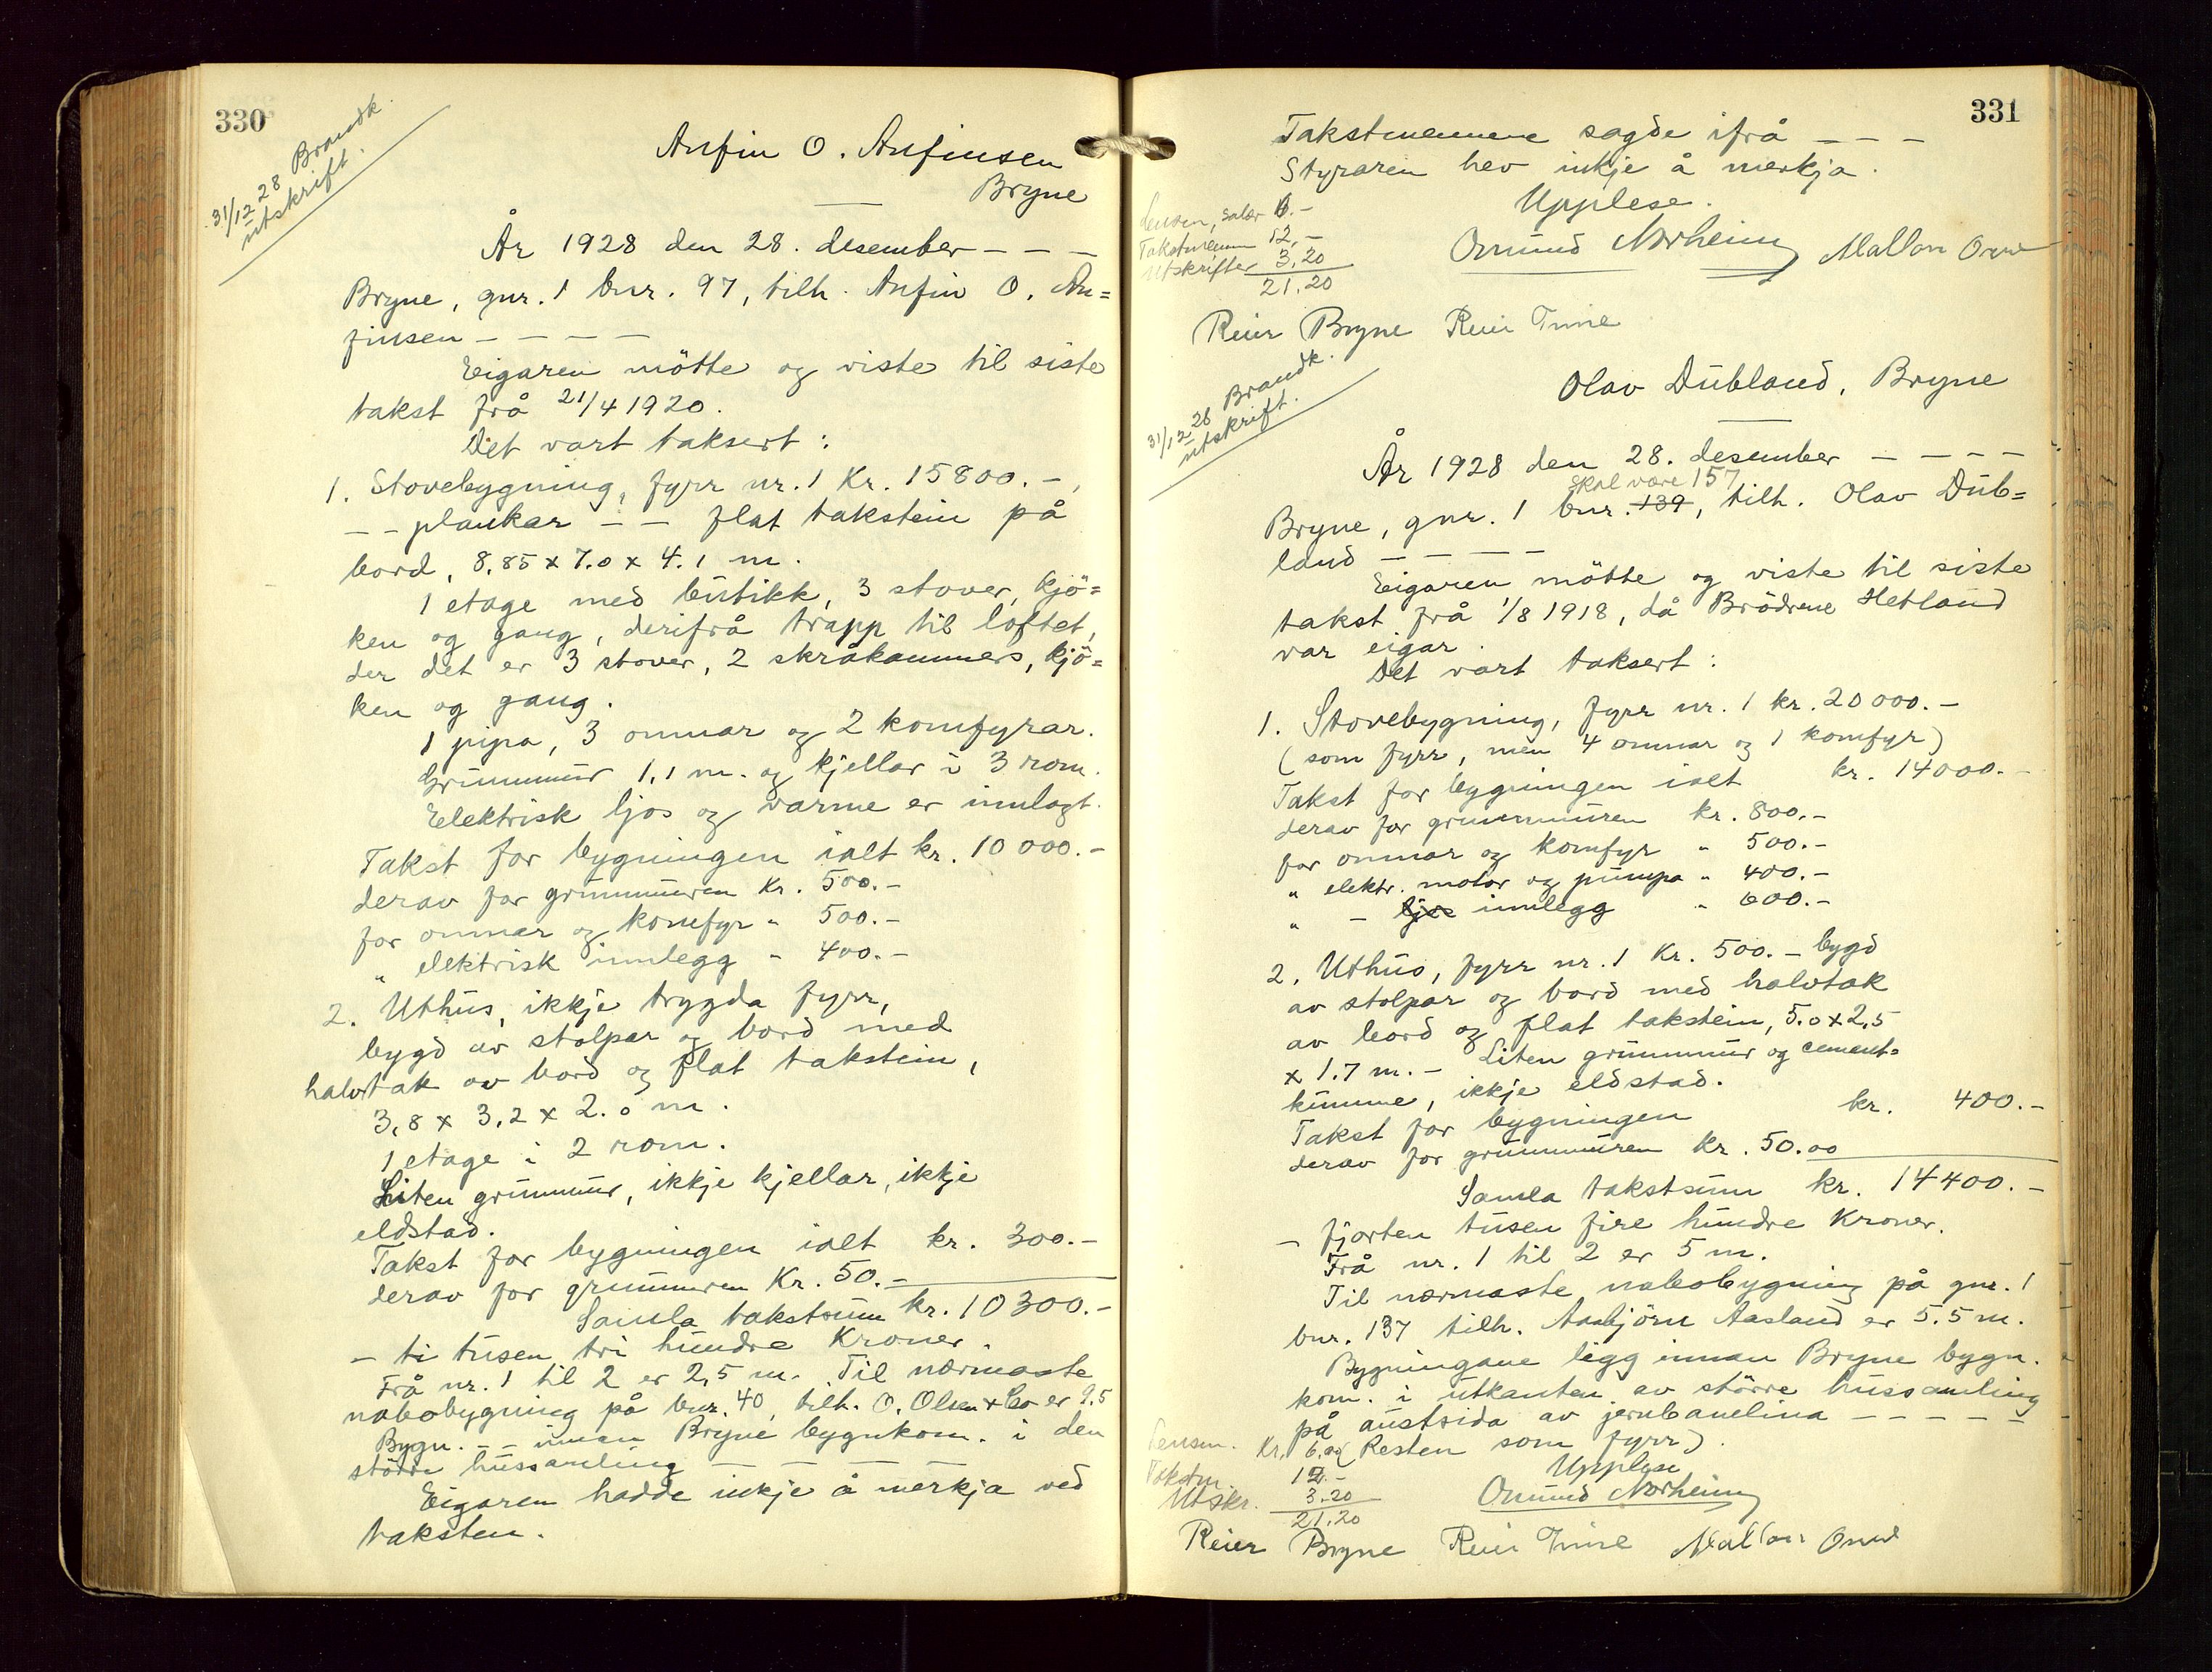 330
31/12 28 Brandk.
utskrift.
Anfin O. Anfinsen
Bryne
År 1928 den 28. desember - - -
Bryne, gnr. 1 bnr. 97, tilh. Anfin O. An=
finsen - - - -
Eigaren mötte og viste til siste
takst frå 21/4 1920.
Det vart taksert:
1. Stovebygning, fyrr nr. 1 Kr. 15800.-,
- - plankar - - flat takstein på
bord, 8.85 x 7.0 x 4.1 m.
1 etage med butikk, 3 stover, kjö=
ken og gang, derifrå trapp til loftet,
der det er 3 stover, 2 skråkammers, kjö=
ken og gang.
1 pipa, 3 omnar og 2 komfyrar.
Grunnmur 1,1 m. og kjellar i 3 rom.
Elektrisk ljos og varme er innlagt.
Takst for bygningen ialt kr. 10 000.-
derav for grunnmuren Kr. 500.-
for omnar og komfyr " 500.-
" elektrisk innlegg " 400.-
2. Uthus, ikkje trygda fyrr,
bygd av stolpar og bord med
halvtak av bord og flat takstein,
3,8 x 3,2 x 2.0 m.
1 etage i 2 rom.
Liten grunnmur, ikkje kjellar, ikkje
eldstad.
Takst for bygningen ialt kr. 300.-
derav for grunnmuren Kr. 50.-
Samla takstsum kr. 10300.-
- ti tusen tri hundre Kroner.
Frå nr. 1 til 2 er 2,5 m. Til nærmaste
nabobygning på bnr. 40, tilh. O. Olsen & Co er 9.5
Bygn. - - innan Bryne bygnkom. i den
större hussamling - - - -
Eigaren hadde inkje å merkja ved
taksten.
331
Takstmennene sagde ifrå - - -
Styraren hev inkje å merkja.
Upplese.
salær 6.-
Takstmenn 12.-
Utskrifter 3.20
21.20
Omund Norheim
Reier Bryne Reier Tune
31/12 28 Brandk.
utskrift.
Olav Dubland, Bryne
År 1928 den 28. desember - - - -
skal være 157
Bryne, gnr. 1 bnr. 139, tilh. Olav Dub=
land - - - -
Eigaren mötte og viste til siste
takst frå 1/8 1918, då Brödrene Hetland
var eigar.
Det vart taksert:
1. Stovebygning, fyrr nr. 1 kr. 20 000.-
(som fyrr, men 4 omnar og 1 komfyr)
Takst for bygningen ialt kr. 14000.-
derav for grunnmuren kr. 800.-
for omnar og komfyr " 500.-
" elektr. motor og pumpa " 400.-
" - ljos innlegg " 600.-
2. Uthus, fyrr nr. 1 Kr. 500.- bygd
av stolpar og bord med halvtak
av bord og flat takstein, 5.0 x 2.5
x 1.7 m. - Liten grunnmur og cement=
kumme, ikkje eldstad.
Takst for bygningen kr. 400.-
derav for grunnmuren Kr. 50.00
Samla takstsum kr. 14400.-
- fjorten tusen fire hundre Kroner.
Frå nr. 1 til 2 er 5 m.
Til nærmaste nabobygning på gnr. 1
bnr. 137 tilh. Asbjörn Aasland er 5.5 m.
Bygningane ligg innan Bryne bygn.
kom. i utkanten av större hussamling
på austsida av jernbanelina - - - - -
(Resten som fyrr).
Kr. 6.00
Takstm. 12.-
Utskr. 3.20
21.20
Upplese
Omund Norheim
Reier Bryne Reier Tune